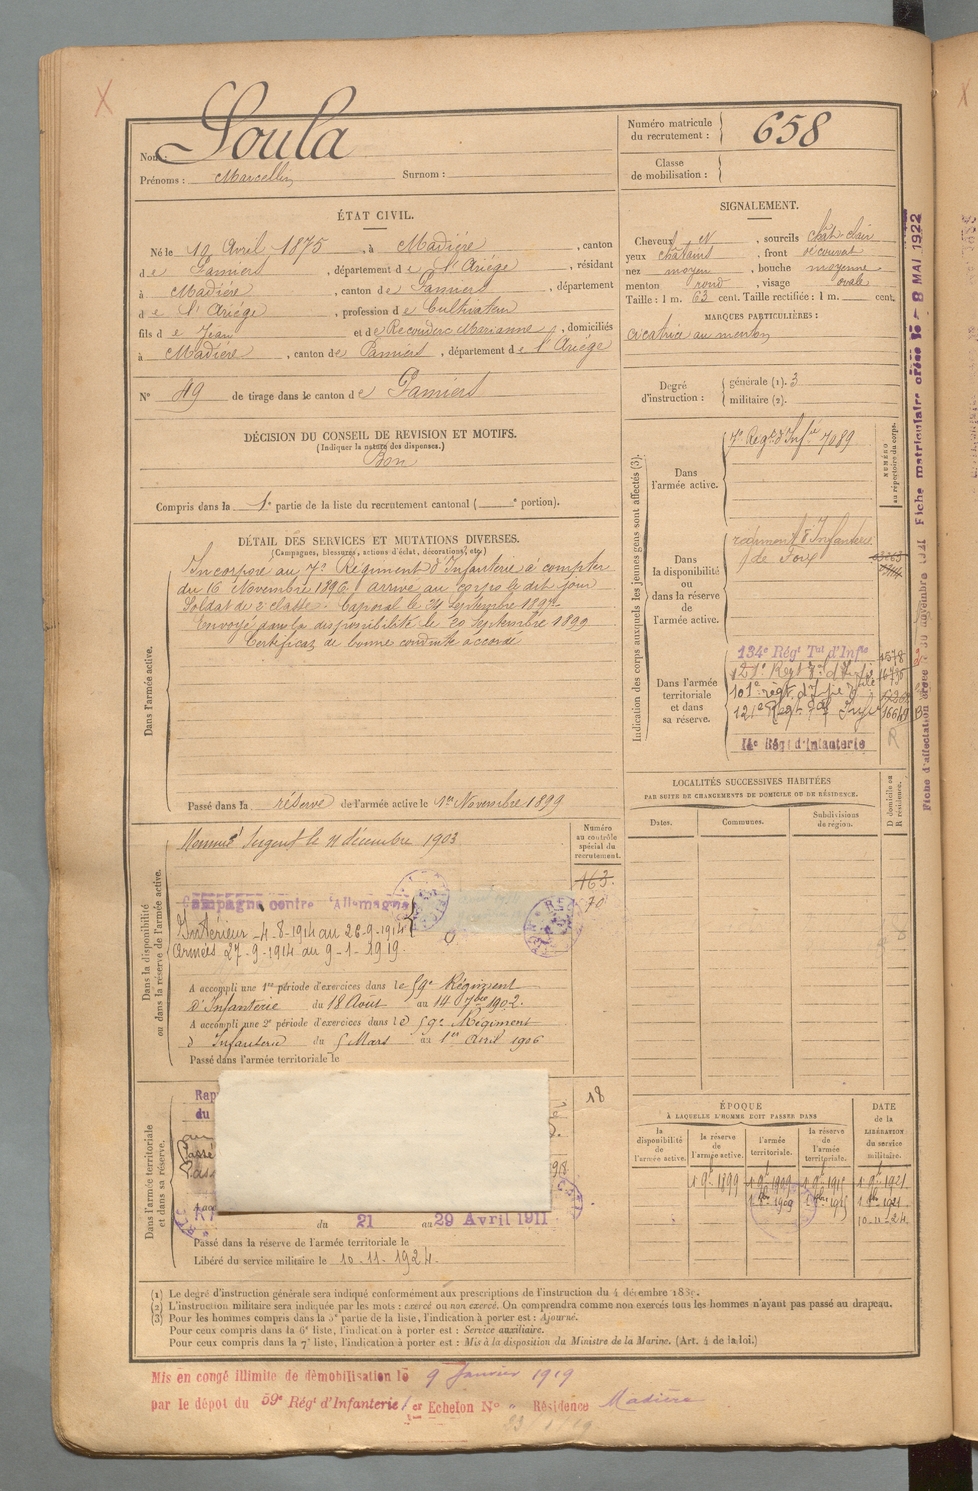 Nom : Soula
Prénoms : Marcellin Surnom :
Numéro matricule du recrutement : 658
Classe de mobilisation :
ÉTAT CIVIL.
Né le 19 Avril 1875, à Madière, canton
de Pamiers, département de l'Ariège, résidant
à Madière, canton de Pamiers, département
de l'Ariège, profession de Cultivateur
fils de Jean et de Recouderc Marianne, domiciliés
à Madière, canton de Pamiers, département de l'Ariège
N° 49 de tirage dans le canton de Pamiers
SIGNALEMENT.
Cheveux N, sourcils chât-clair
yeux châtains, front découvert
nez moyen, bouche moyenne
menton rond, visage ovale
Taille : 1 m. 63 cent. Taille rectifiée : 1 m. cent.
MARQUES PARTICULIÈRES :
cicatrice au menton
Degré d'instruction : générale (1). 3
militaire (2).
DÉCISION DU CONSEIL DE REVISION ET MOTIFS.
(Indiquer la nature des dispenses.)
Bon
Compris dans la 1e partie de la liste du recrutement cantonal ( e portion).
DÉTAIL DES SERVICES ET MUTATIONS DIVERSES.
(Campagnes, blessures, actions d'éclat, décorations, etc.)
Dans l'armée active.
Incorporé au 7e Régiment d'Infanterie à compter
du 16 Novembre 1896. arrivé au corps le dit jour
Soldat de 2e classe. Caporal le 24 Septembre 1897
Envoyé dans la disponibilité le 20 Septembre 1899
Certificat de bonne conduite accordé
Passé dans la réserve de l'armée active le 1er Novembre 1899
Indication des corps auxquels les jeunes gens sont affectés (3).
NUMÉRO au répertoire du corps.
Dans l'armée active.
7e Regt d'Infie 7089
Dans la disponibilité ou dans la réserve de l'armée active.
régiment d'Infanterie
de Foix
Dans l'armée territoriale et dans sa réserve.
134e Régt Tal d'Infie 1578
121e Regt
101e régt
121e Regt 16649
14e Régt d'Infanterie
R
Fiche d'affectation créée 30 novembre 1921 Fiche matriculaire créée le 8 MAI 1922
LOCALITÉS SUCCESSIVES HABITÉES
PAR SUITE DE CHANGEMENTS DE DOMICILE OU DE RÉSIDENCE.
Dates. Communes. Subdivisions de région. D domicile ou R résidence.
Dans la disponibilité ou dans la réserve de l'armée active.
Numéro au contrôle spécial du recrutement.
Sergent le 11 décembre 1903
163
70
Campagne contre l'Allemagne
Intérieur 4-8-1914 au 26-9-1914
Armées 27-9-1914 au 9-1-1919
A accompli une 1re période d'exercices dans le 59e Régiment
d'Infanterie du 18 Août au 14 7bre 1902.
A accompli une 2e période d'exercices dans le 59e Régiment
d'Infanterie du 5 Mars au 1er Avril 1906
Passé dans l'armée territoriale le
Dans l'armée territoriale et dans sa réserve.
18
Rap
du
du 21 au 29 Avril 1911
Passé dans la réserve de l'armée territoriale le
Libéré du service militaire le 10-11-1924.
ÉPOQUE
À LAQUELLE L'HOMME DOIT PASSER DANS
la disponibilité de l'armée active.
la réserve de l'armée active.
l'armée territoriale.
la réserve de l'armée territoriale.
DATE de la LIBÉRATION du service militaire.
1 9bre 1899 1 9bre 1909 1 9bre 1915 1 9bre 1921
1 8bre 1909 1 8bre 1915 1 8bre 1921
10-11-24
(1) Le degré d'instruction générale sera indiqué conformément aux prescriptions de l'instruction du 4 décembre 1889.
(2) L'instruction militaire sera indiquée par les mots : exercé ou non exercé. On comprendra comme non exercés tous les hommes n'ayant pas passé au drapeau.
(3) Pour les hommes compris dans la 5e partie de la liste, l'indication à porter est : Ajourné.
Pour ceux compris dans la 6e liste, l'indication à porter est : Service auxiliaire.
Pour ceux compris dans la 7e liste, l'indication à porter est : Mis à la disposition du Ministre de la Marine. (Art. 4 de la loi.)
Mis en congé illimité de démobilisation le 9 Janvier 1919
par le dépot du 59e Régt d'Infanterie 1er Echelon N° Résidence Madière